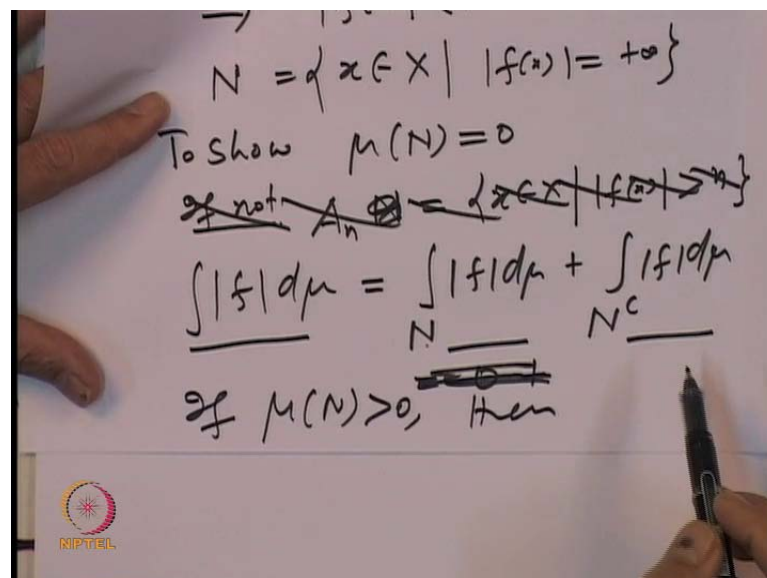 N = { x ∈ X | |f(x)| = +∞ }
To show μ(N) = 0
If not A_n = { x ∈ X | |f(x)| > n }
∫|f|dμ = ∫_N |f|dμ + ∫_{N^c} |f|dμ
If μ(N) > 0, then
NPTEL